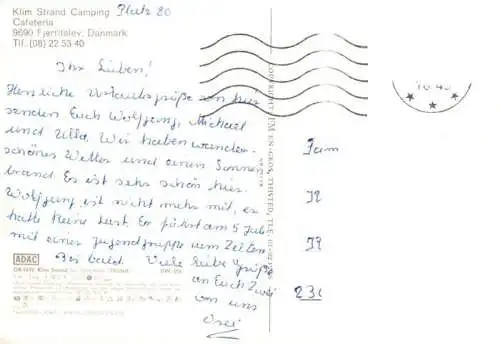 Klim Strand Camping Platz 80
Cafeteria
9690 Fjerritslev, Danmark
Tlf. (08) 22 53 40
Ihr Lieben!
Herzliche Urlaubsgrüße von hier
senden Euch Wolfgang, Michael
und Ulla. Wir haben wunder-
schönes Wetter und einen Sonnen
brand. Es ist sehr schön hier.
Wolfgang ist nicht mehr mit, er
hatte keine Lust. Er fährt am 5 Juli
mit einer Jugendgruppe zum Zelten.
Bis bald. Viele liebe Grüße
an Euch Zwei
von uns
drei
ADAC
Klim Strand
COPYRIGHT
THISTED, TLF.
Fam
23